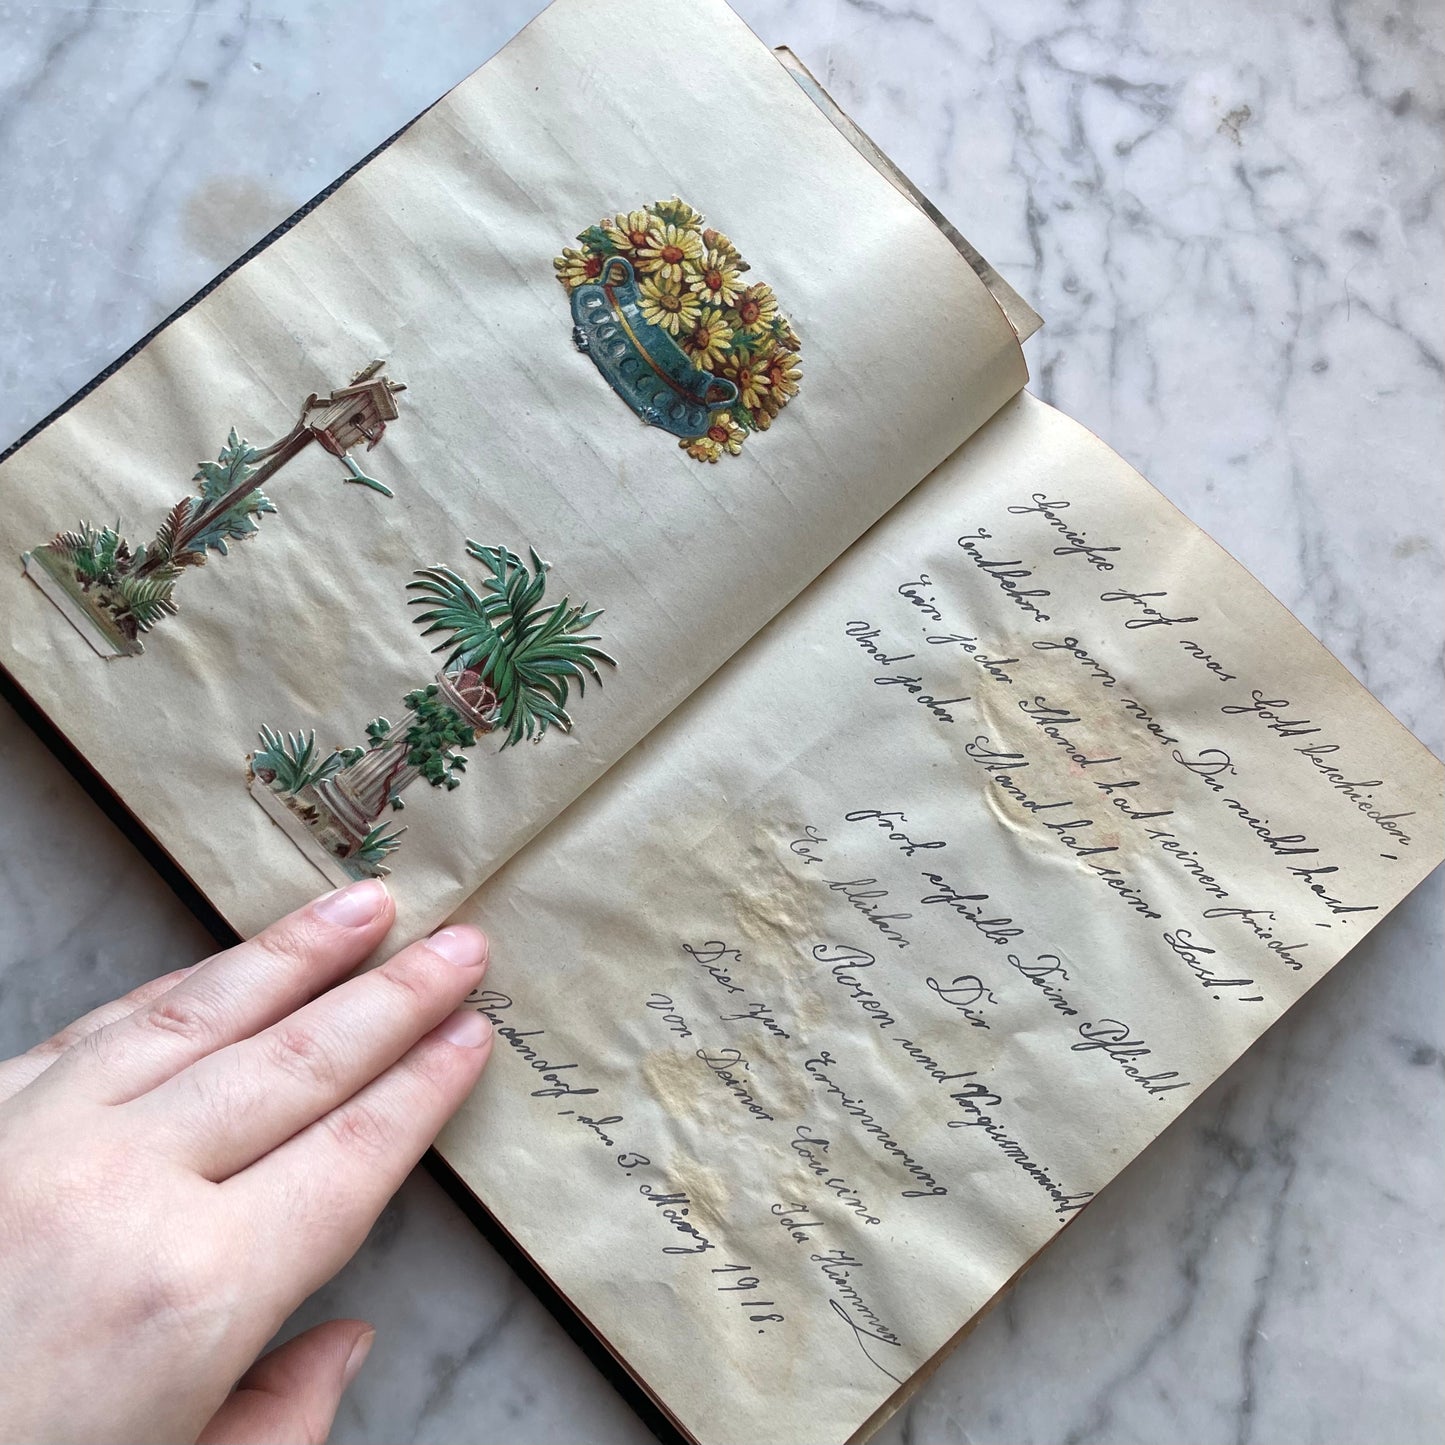 Genieße froh was Gott beschieden,
Entbehre gern was Du nicht hast.
Ein jeder Stand hat seinen Frieden,
Und jeder Stand hat seine Last!
Froh erfülle Deine Pflicht.
Es blühen Dir
Rosen und Vergissmeinicht.
Dies zur Errinnerung
von Deiner Cousine
Ida Kiemmer
den 3. März 1918.